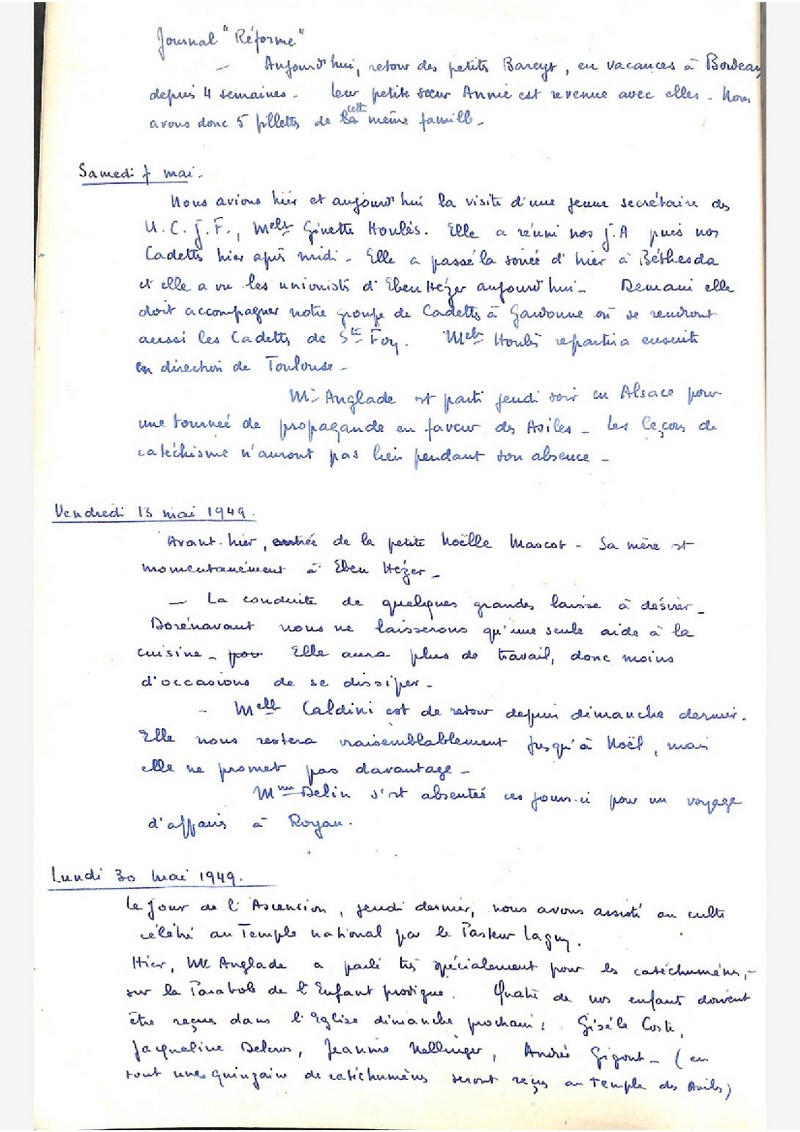 Journal "Réforme"
— Aujourd'hui, retour des petits Bareyt, en vacances à Bordeau
depuis 4 semaines - leur petite sœur Annie est revenue avec elles - Nous
avons donc 5 fillettes de cette même famille -
Samedi 7 mai -
Nous avions hier et aujourd'hui la visite d'une jeune secrétaire des
U.C.J.F., Melle Ginette Houlès. Elle a réuni nos J.A puis nos
Cadettes hier après midi - Elle a passé la soirée d'hier à Béthesda
et elle a vu les unionists d'Eben Hézer aujourd'hui - Demain elle
doit accompagner notre groupe de Cadettes à Gardonne où se rendront
aussi les Cadettes de Ste Foy. Melle Houlès repartira ensuite
en direction de Toulouse -
Mr Anglade est parti jeudi soir en Alsace pour
une tournée de propagande en faveur des Asiles - Les leçons de
catéchisme n'auront pas lieu pendant son absence -
Vendredi 13 mai 1949.
Avant-hier, entrée de la petite Noëlle Mascot - Sa mère est
momentanément à Eben Hézer -
— La conduite de quelques grandes laisse à désirer -
Dorénavant nous ne laisserons qu'une seule aide à la
cuisine - pour Elle aura plus de travail, donc moins
d'occasions de se dissiper -
- Melle Caldini est de retour depuis dimanche dernier.
Elle nous restera vraisemblablement jusqu'à Noël, mais
elle ne promet pas davantage -
Mme Belin s'est absentée ces jours-ci pour un voyage
d'affaires à Royan.
Lundi 30 mai 1949.
Le jour de l'Ascension, jeudi dernier, nous avons assisté au culte
célébré au Temple national par le Pasteur Lagny.
Hier, Mr Anglade a parlé très spécialement pour les catéchumènes, -
sur la Parabole de l'Enfant prodigue. Quatre de nos enfants doivent
être reçues dans l'Eglise dimanche prochain : Gisèle Coste,
Jacqueline Delcros, Jeannie Nellinger, Andrée Gigont - (en
tout une quinzaine de catéchumènes seront reçus au Temple des Asiles)